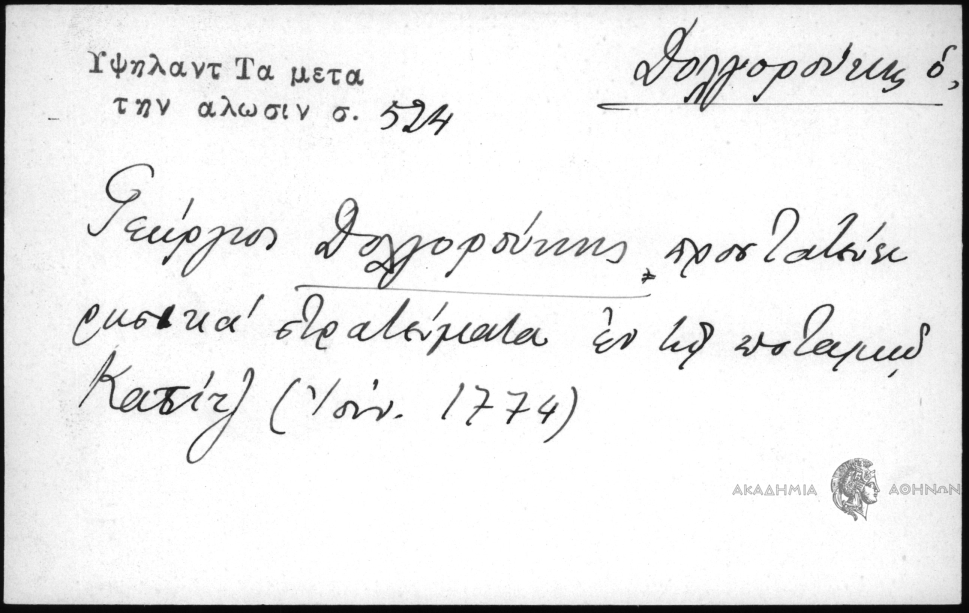 Υψηλαντ Τα μετα
την αλωσιν σ. 524
Δολγορούκης ὁ,
Γεώργιος Δολγορούκης προστατεύει
ρωσικά στρατεύματα ἐν τῷ ποταμῷ
(Ἰούν. 1774)
ΑΚΑΔΗΜΙΑ ΑΘΗΝΩΝ